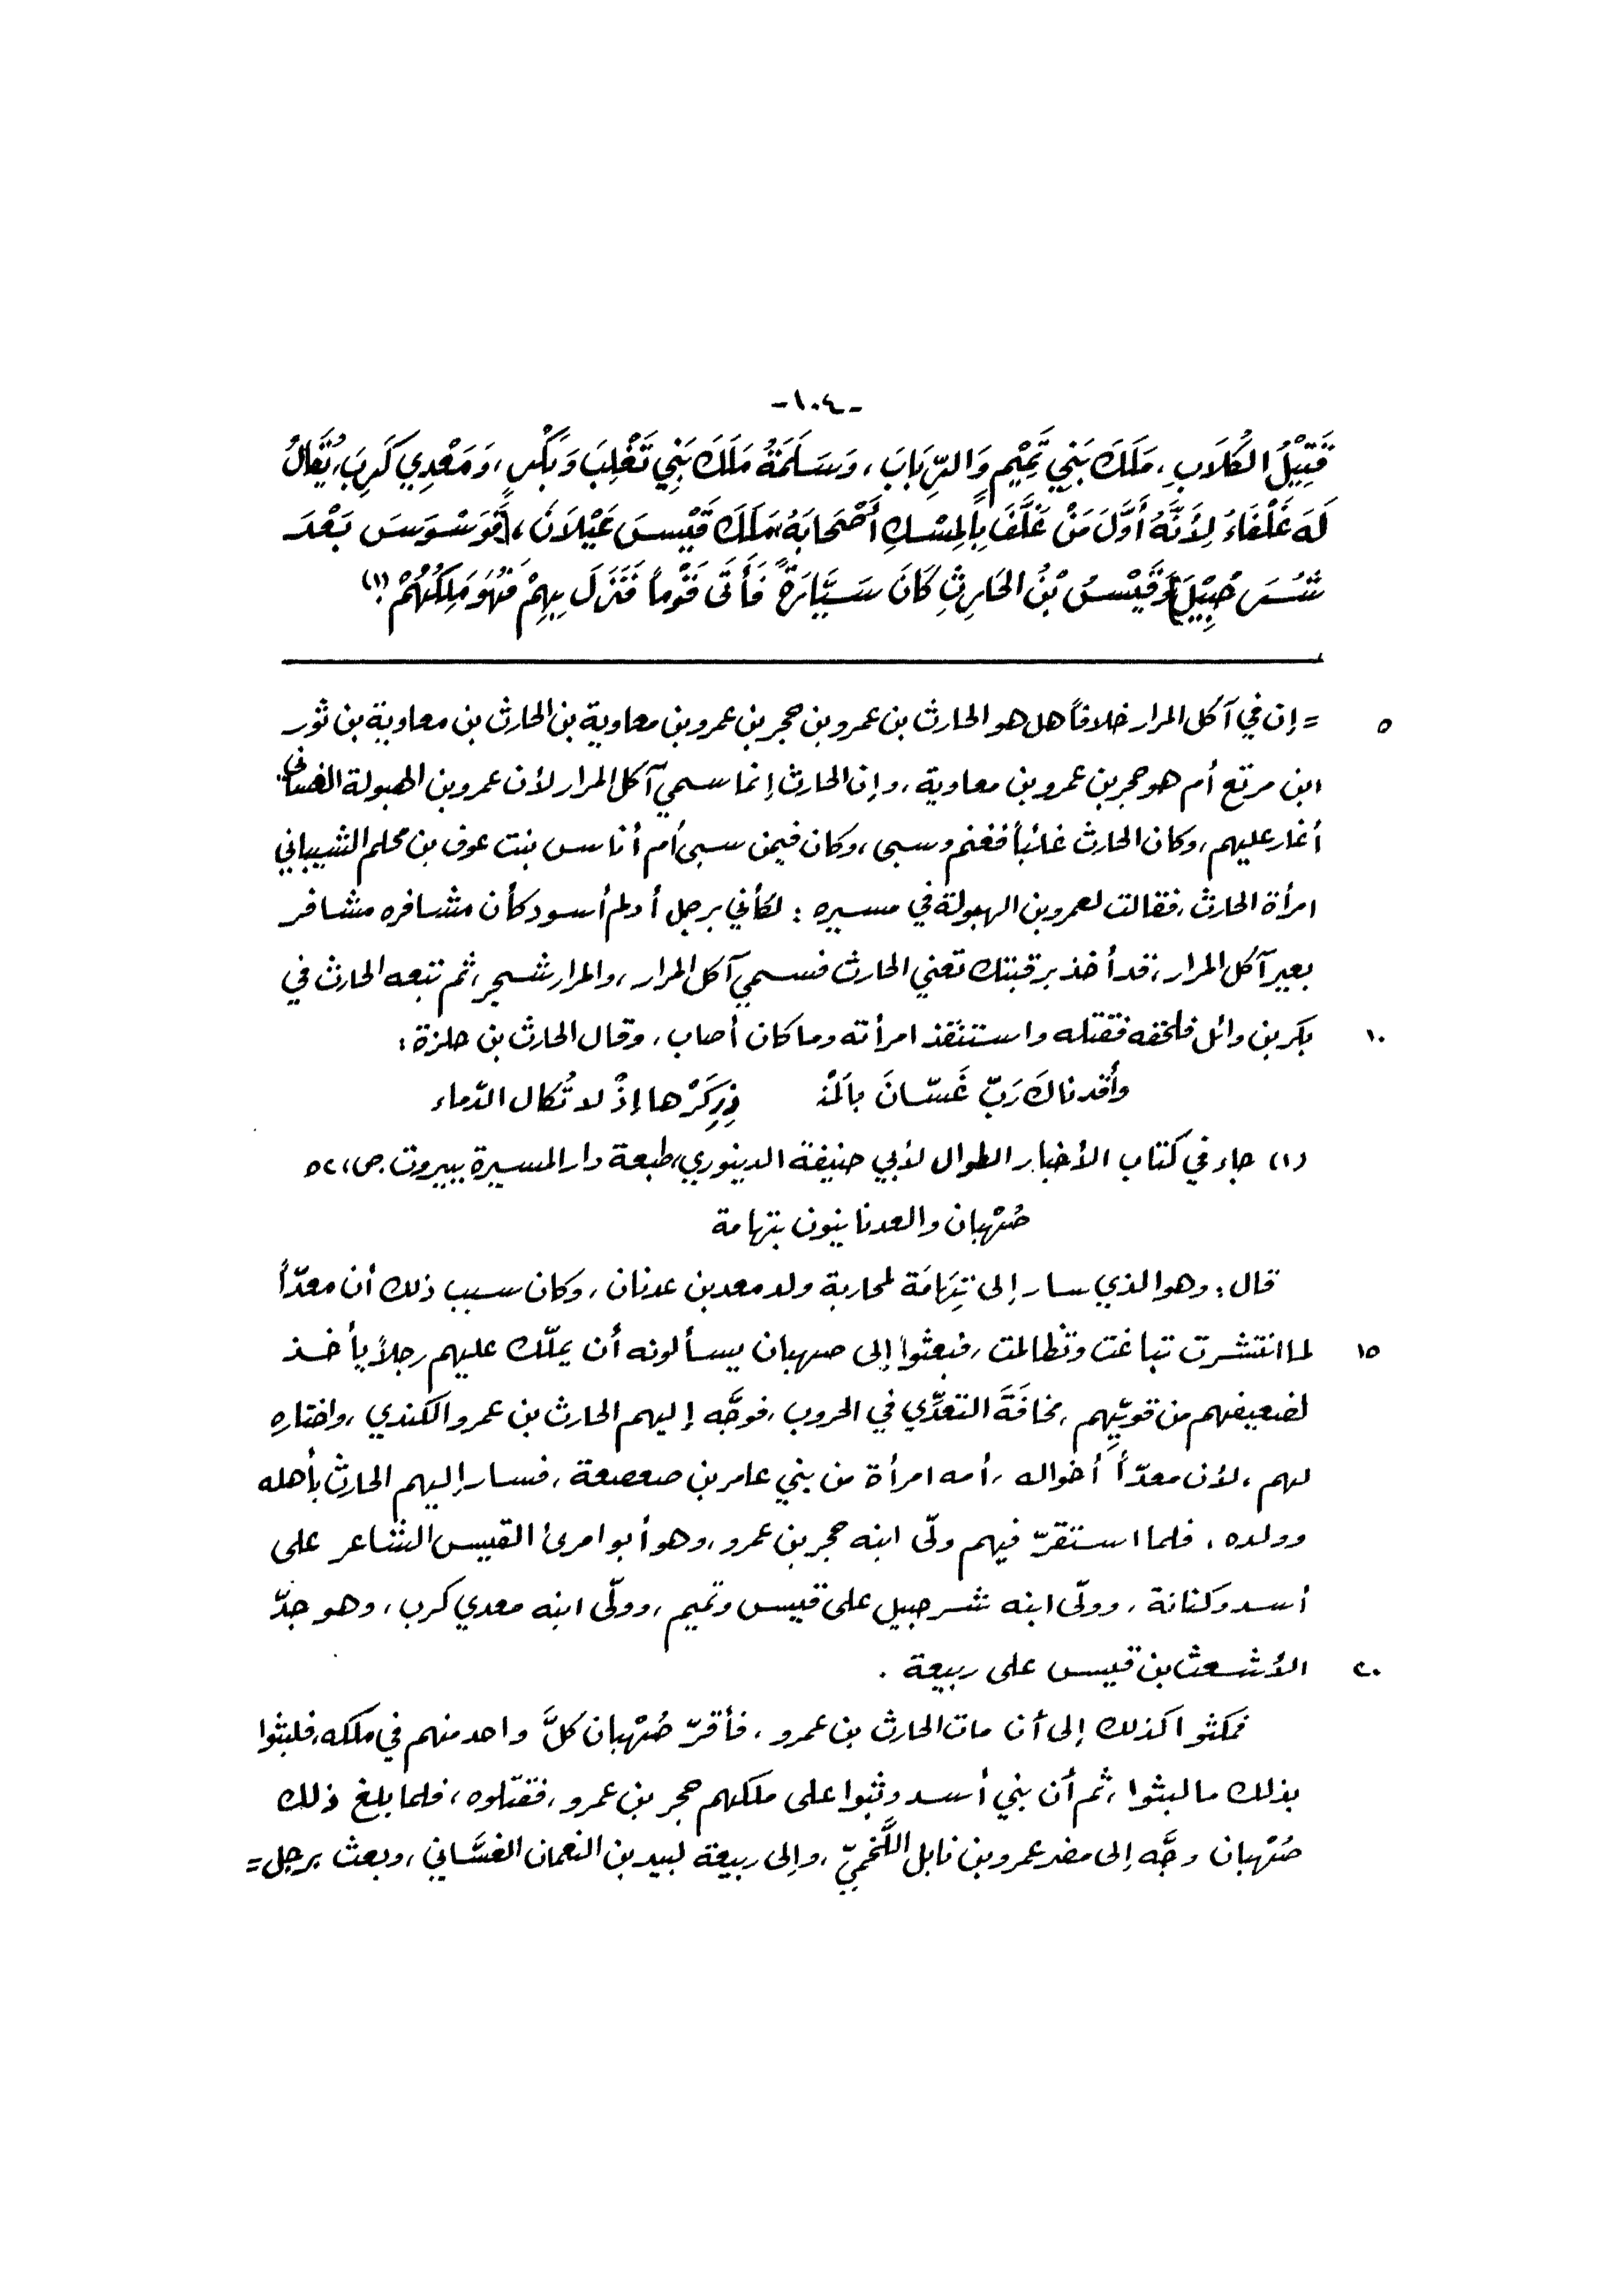 -١٠٤-
قَتِيْلُ الكُلَابِ، مَلَكَ بَنِي تَمِيْمٍ وَالرِّبَابَ، وَسَلَمَةُ مَلَكَ بَنِي تَغْلِبَ وَبَكْرٍ، وَمَعْدِي كَرِبَ، يُقَالُ
لَهَ غَلْفَاءُ لِأَنَّهُ أَوَّلَ مَنْ غَلَّفَ بِالِمْسْكِ أَصْحَابَهُ، مَلَكَ قَيْسَ عَيْلَانَ، [فَوَسْوَسَ بَعْدَ
شُرَحْبِيْلَ] وَقَيْسُ بْنُ الحَارِثِ كَانَ سَيَّارَةً فَأَتَى قَوْماً فَنَزَلَ بِهِمْ فَهُوَ مَلِكُهُمْ.(١)
٥ = إن في آكل المرار خلافاً هل هو الحارث بن عمرو بن حجر بن عمرو بن معاوية بن الحارث بن معاوية بن ثور
ابن مرتع أم هو حجر بن عمرو بن معاوية، وإن الحارث إنما سمي آكل المرار لأن عمرو بن الهبولة الغساني
أغار عليهم، وكان الحارث غائباً فغنم وسبى، وكان فيمن سبى أم أناس بنت عوف بن محلم الشيباني
امرأة الحارث، فقالت لعمرو بن الهبولة في مسيره: لكأني برجل أدلم أسود كأن مشافره مشافر
بعير آكل المرار، قد أخذ برقبتك تعني الحارث فسمي آكل المرار، والمرار شجر، ثم تبعه الحارث في
١٠ بكر بن وائل فلحقه فقتله واستنقذ امرأته وما كان أصاب، وقال الحارث بن حلزة:
وأَقدناكَ رَبّ غَسّانَ بالَمنْـ ذِرِ كَرْها إذْ لا تُكال الدّماء
(١) جاء في كتاب الأخبار الطوال لأبي حنيفة الدينوري، طبعة دار المسيرة ببيروت. ص، ٥٢
صُهْبان والعدنانيون بتهامة
قال: وهو الذي سار إلى تِهَامَة لمحاربة ولد معد بن عدنان، وكان سبب ذلك أن معدّاً
١٥ لما انتشرت تباغت وتظالمت، فبعثوا إلى صهبان يسألونه أن يملّك عليهم رجلاً يأخذ
لضعيفهم من قويّهِم، مخافَةَ التعدِّي في الحروب، فوجَّه إليهم الحارث بن عمرو الكندي، واختاره
لهم، لأن معدّاً أخواله، أمه امرأة من بني عامر بن صعصعة، فسار إليهم الحارث بأهله
وولده، فلما استقرّ فيهم ولّى ابنه حجر بن عمرو، وهو أبو امرئ القيس الشاعر على
أسد وكنانة، وولّى ابنه شرحبيل على قيس وتميم، وولّى ابنه معدي كرب، وهو جدّ
٢٠ الأشعث بن قيس على ربيعة.
فمكثوا كذلك إلى أن مات الحارث بن عمرو، فأقرّ صُهْبان كلَّ واحد منهم في ملكه، فلبثوا
بذلك ما لبثوا، ثم أن بني أسد وثبوا على ملكهم حجر بن عمرو، فقتلوه، فلما بلغ ذلك
صُهْبان وجَّه إلى مضر عمرو بن نابل اللَّخميّ، وإلى ربيعة لبيد بن النعمان الغسَّاني، وبعث برجل =